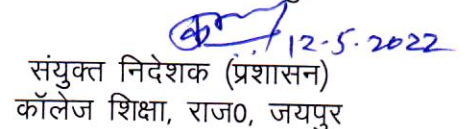 12-5-2022
संयुक्त निदेशक (प्रशासन)
कॉलेज शिक्षा, राज0, जयपुर